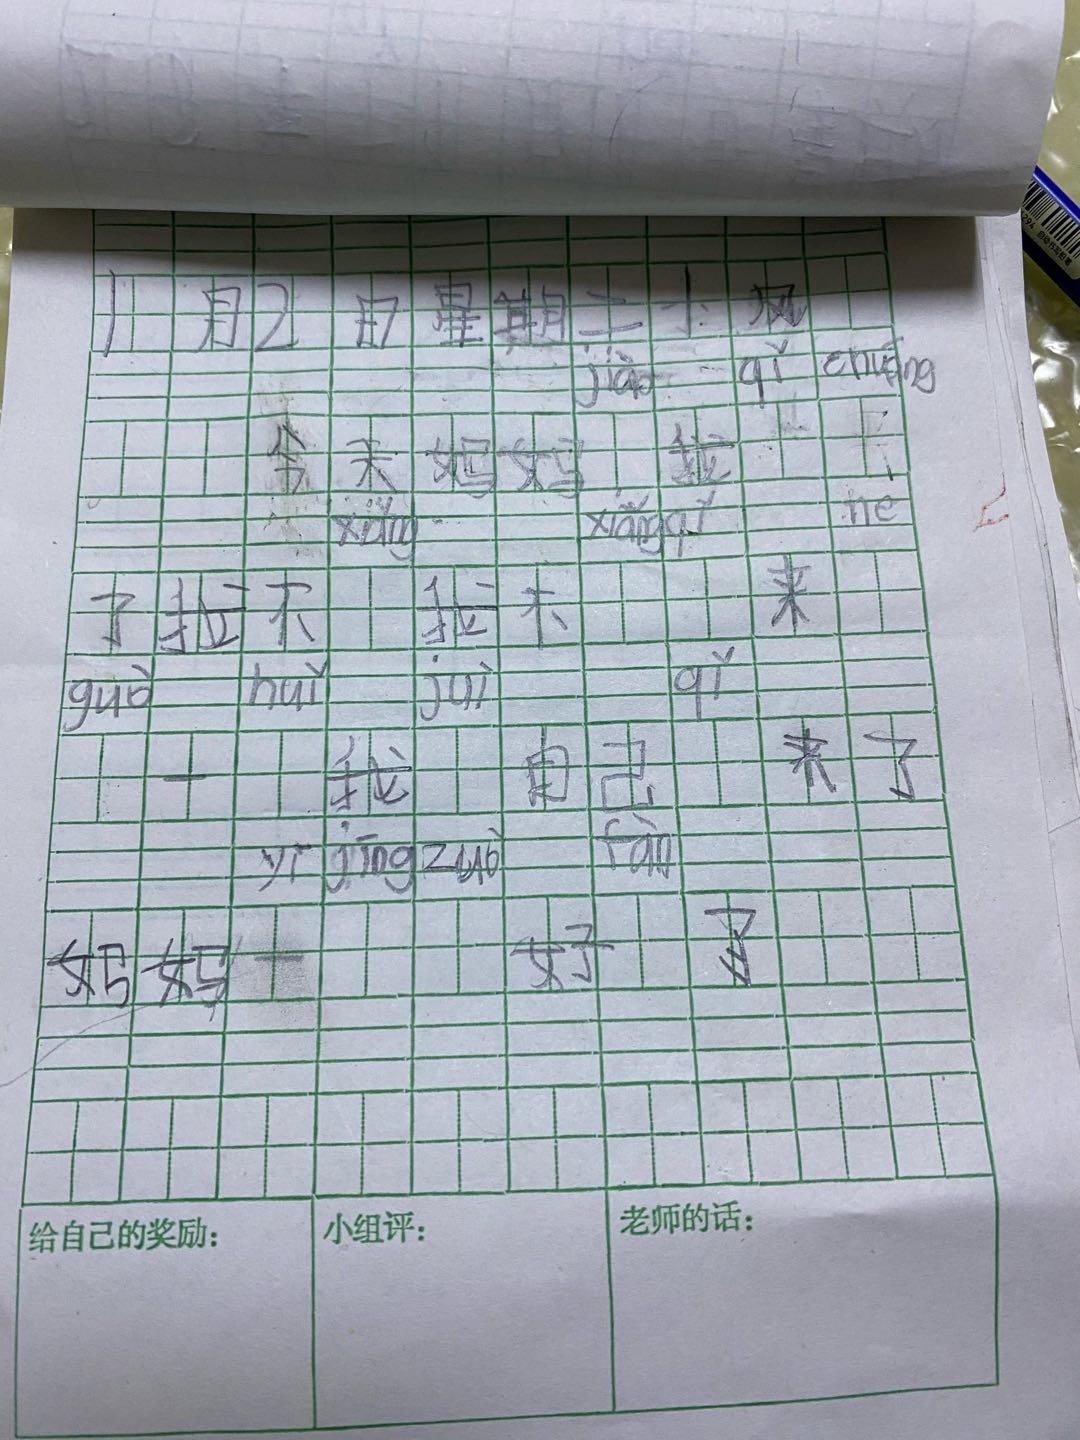 1月2日星期二小风
jiào qǐ chuáng
今天妈妈 我
xiǎng xiǎng qǐ ne
了我不 我不 来
guò huǐ juì qǐ
一 我 自己 来了
yǐ jīng zuò fàn
妈妈 好 了
给自己的奖励: 小组评: 老师的话: